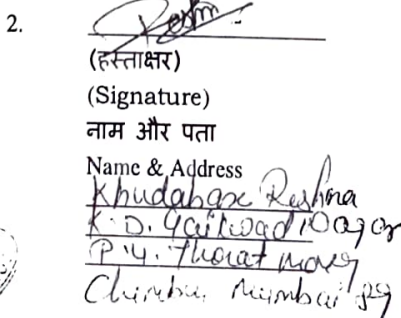 2.
(हस्ताक्षर)
(Signature)
नाम और पता
Name & Address
Khudabaxe Reshma
K. D. Gaikwad
P. Y. Thorat
Mumbai 89